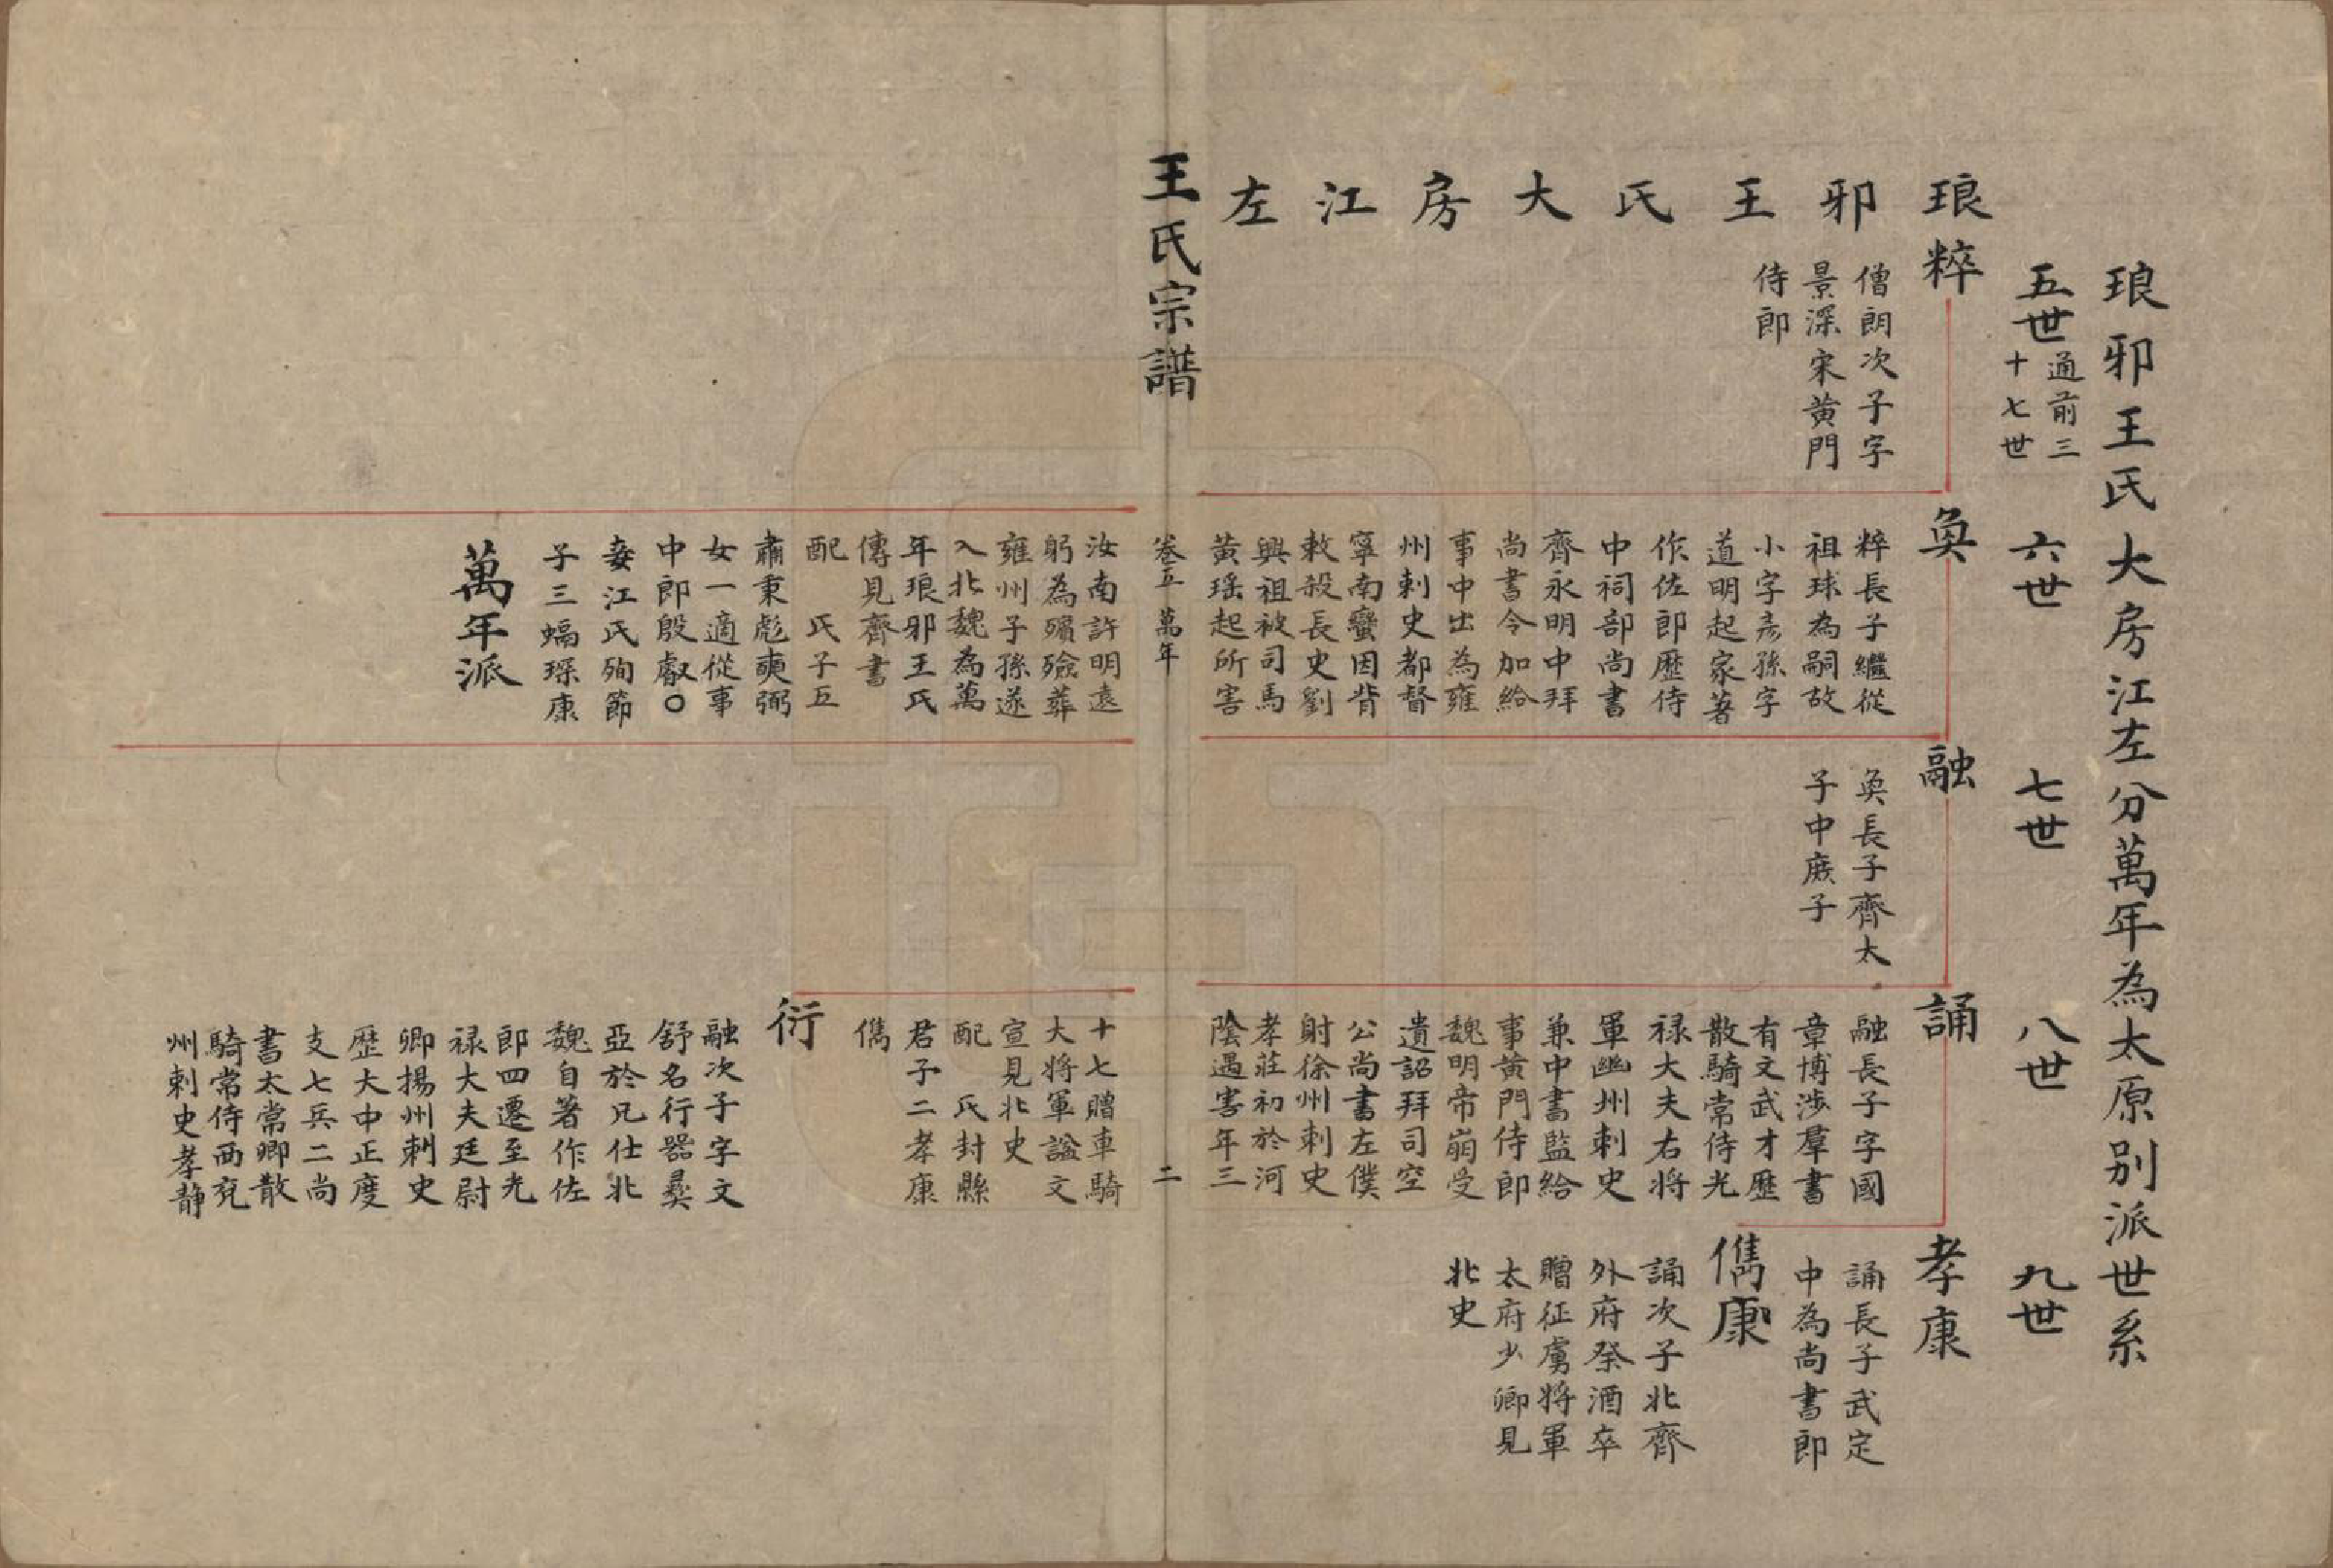 琅邪王氏大房江左分萬年為太原別派世系
五世
通前三
十七世
六世
七世
八世
九世
琅邪王氏大房江左
粹
僧朗次子字
景深宋黄門
侍郎
奐
粹長子繼從
祖球為嗣故
小字彦孫字
道明起家著
作佐郎歷侍
中祠部尚書
齊永明中拜
尚書令加給
事中出為雍
州刺史都督
寧南蠻因背
敕殺長史劉
興祖被司馬
黄瑶起所害
融
奐長子齊太
子中庶子
誦
融長子字國
章博涉羣書
有文武才歷
散騎常侍光
禄大夫右將
軍幽州刺史
兼中書監給
事黄門侍郎
魏明帝崩受
遺詔拜司空
公尚書左僕
射徐州刺史
孝莊初於河
陰遇害年三
孝康
誦長子武定
中為尚書郎
儁康
誦次子北齊
外府祭酒卒
贈征虜將軍
太府少卿見
北史
王氏宗譜
卷五 萬年
二
汝南許明遠
躬為殯殮葬
雍州子孫遂
入北魏為萬
年琅邪王氏
傳見齊書
配 氏子五
肅秉彪奭弼
女一適從事
中郎殷叡○
妾江氏殉節
子三蝠琛康
萬年派
十七贈車騎
大將軍謚文
宣見北史
配 氏封縣
君子二孝康
儁
衍
融次子字文
舒名行器彛
亞於兄仕北
魏自著作佐
郎四遷至光
禄大夫廷尉
卿揚州刺史
歷大中正度
支七兵二尚
書太常卿散
騎常侍西兖
州刺史孝靜